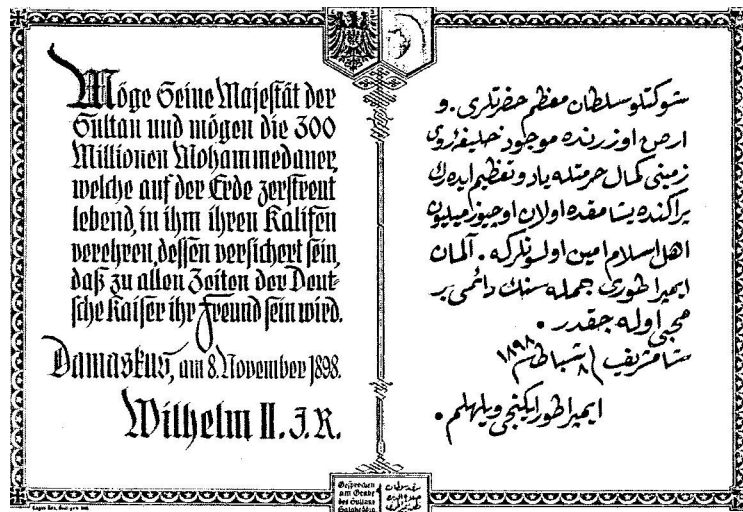 Möge Seine Majestät der
Sultan und mögen die 300
Millionen Mohammedaner,
welche auf der Erde zerstreut
lebend, in ihm ihren Kalifen
verehren, dessen versichert sein,
daß zu allen Zeiten der Deut-
sche Kaiser ihr Freund sein wird.
Damaskus, am 8. November 1898.
Wilhelm II. J. R.
شوكتلو سلطان معظم حضرتلرى. و
ارض اوزرنده موجود خليفۀ روى
زمينى كمال حرمتله ياد و تعظيم ايدەرك
پراكنده يشامقده اولان اوچيوز ميليون
اهل اسلام امين اولسونلركه. آلمان
ايمپراطورى جمله سنك دائمى بر
محبى اوله جقدر.
شامشريف ٨ شباط ١٨٩٨
ايمپراطور ايكنجى ويلهلم.
Gesprochen
am Grabe
des Sultans
Saladeddin